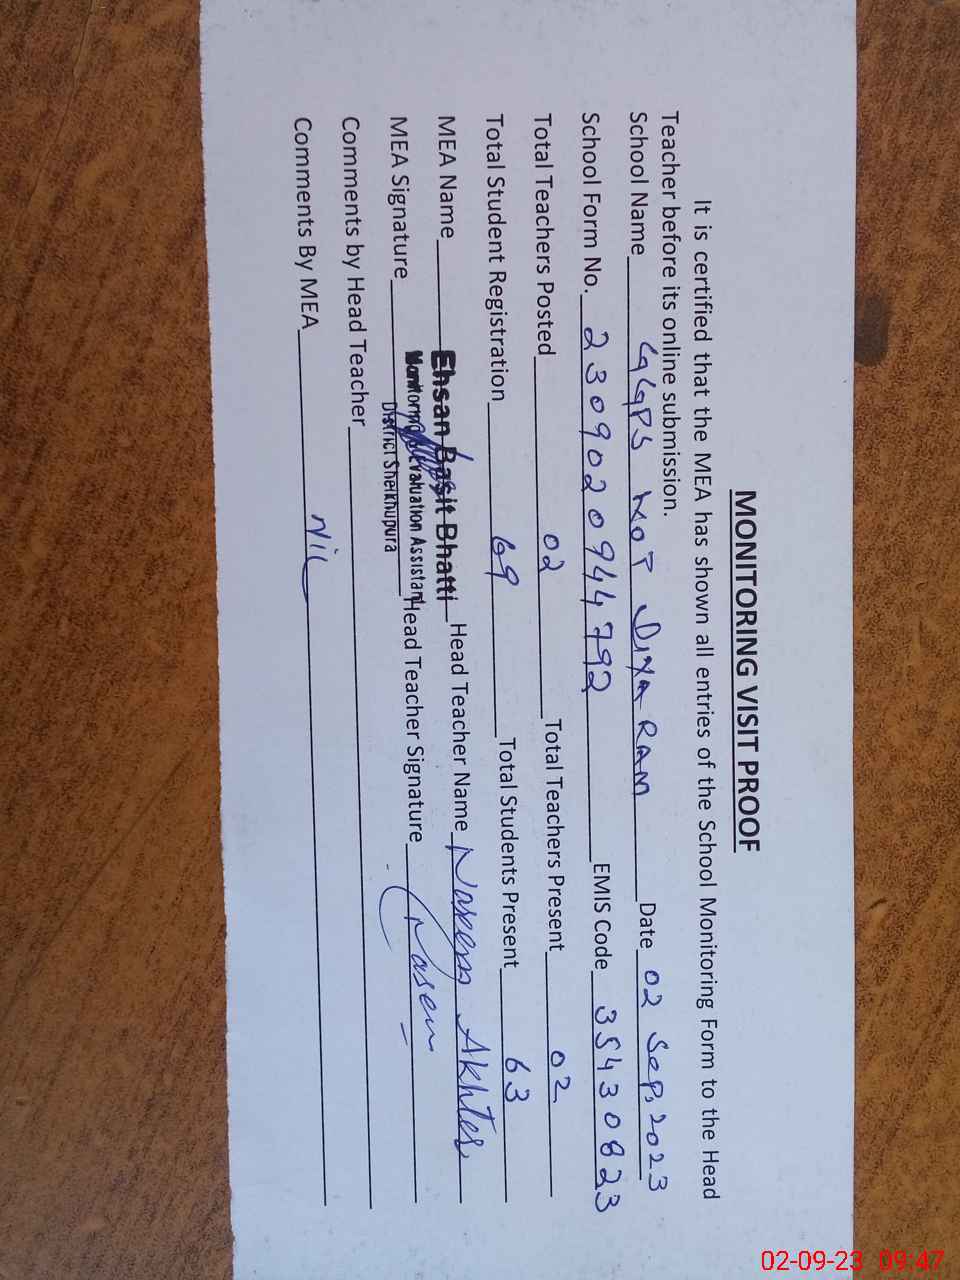 MONITORING VISIT PROOF
It is certified that the MEA has shown all entries of the School Monitoring Form to the Head
Teacher before its online submission.
School Name GGPS MOT Dixa RAM Date 02 Sep, 2023
School Form No. 2309020944792 EMIS Code 35430823
Total Teachers Posted 02 Total Teachers Present 02
Total Student Registration 69 Total Students Present 63
MEA Name Ehsan Basit Bhatti Head Teacher Name Naseem Akhter
MEA Signature Monitoring & Evaluation Assistant Head Teacher Signature Naseem
District Sheikhupura
Comments by Head Teacher
Comments By MEA Nil
02-09-23 09:47